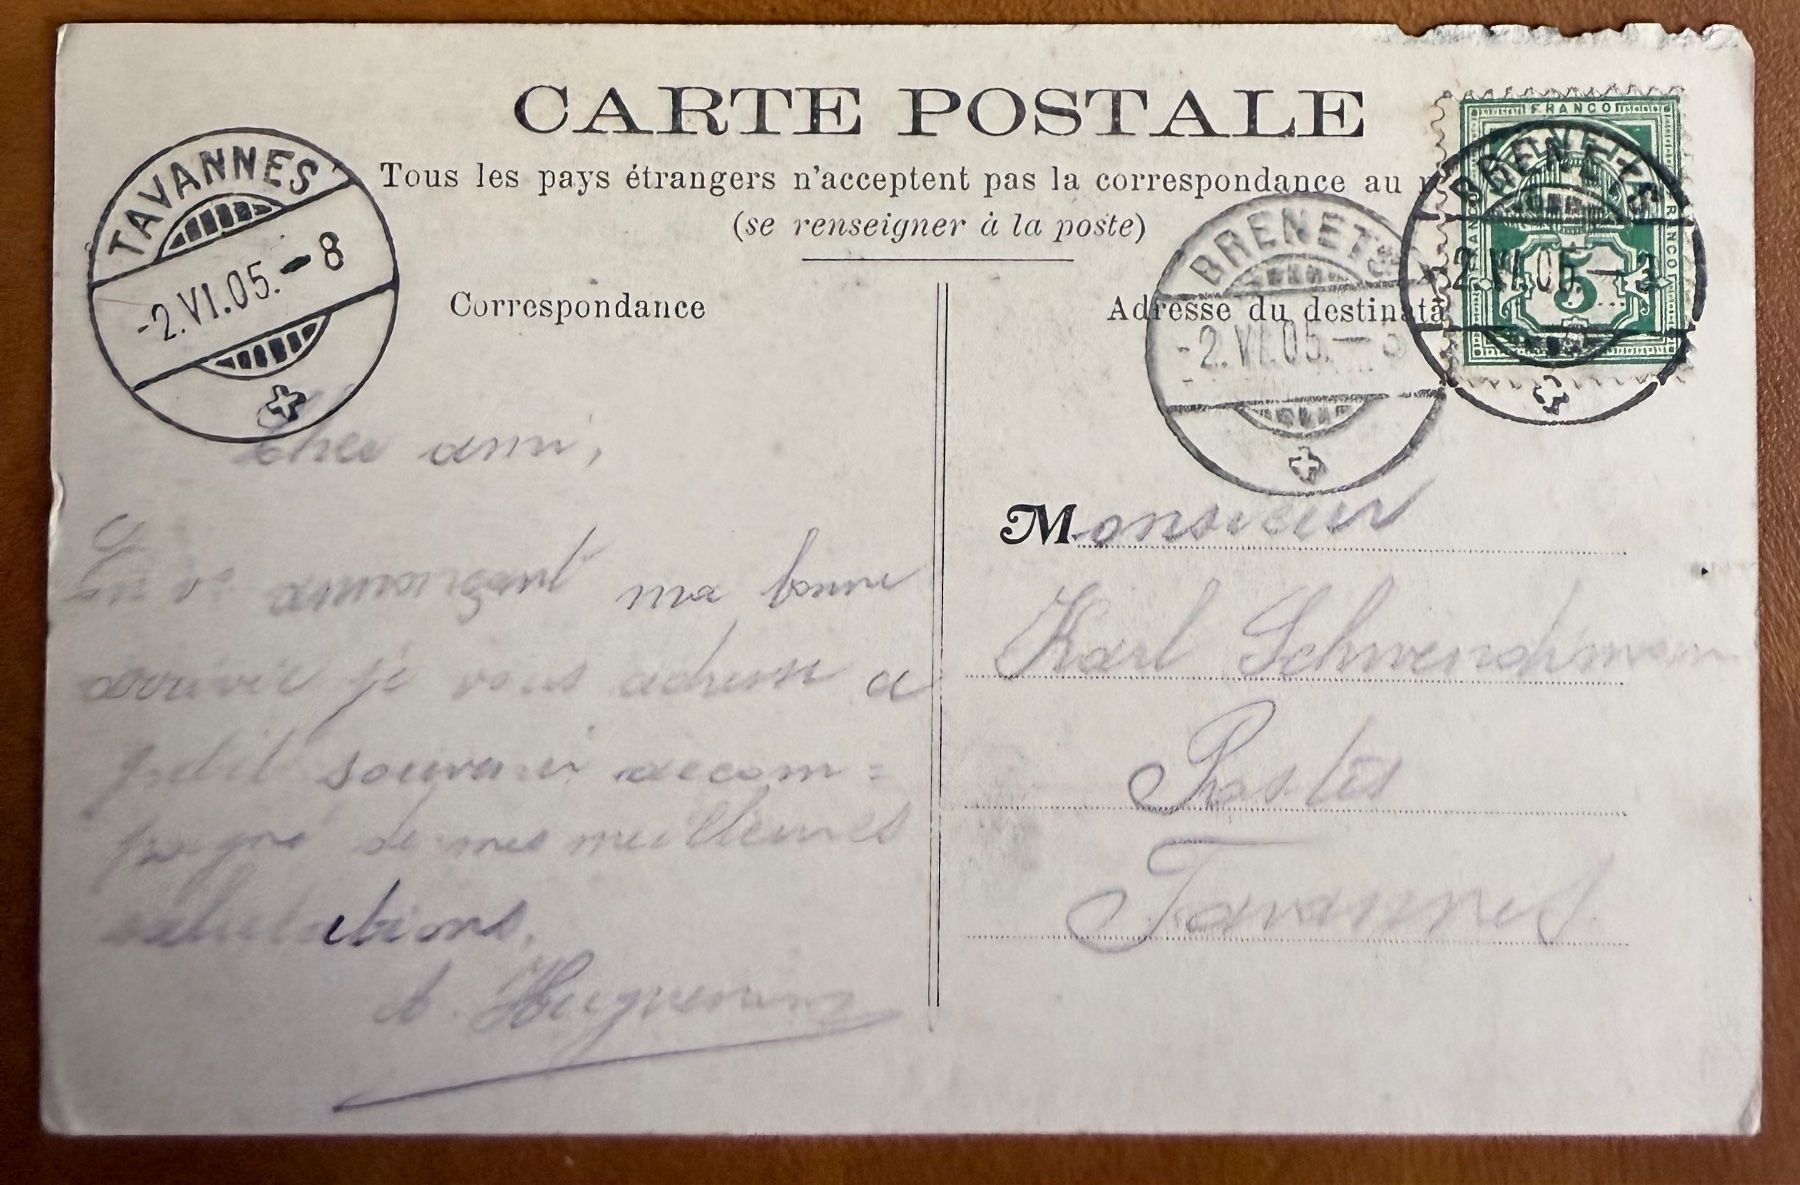 CARTE POSTALE
Tous les pays étrangers n'acceptent pas la correspondance au
(se renseigner à la poste)
TAVANNES
-2.VI.05.-8
BRENETS
-2.VI.05.-3
FRANCO
FRANCO
5
BRENETS
-2.VI.05.-3
Correspondance
Cher ami,
En vs annonçant ma bonne
arrivée je vous adresse ce
petit souvenir accom=
pagné de mes meilleures
salutations.
Huguenin
Adresse du destinata
Monsieur
Karl Schwendimann
Postes
Tavannes